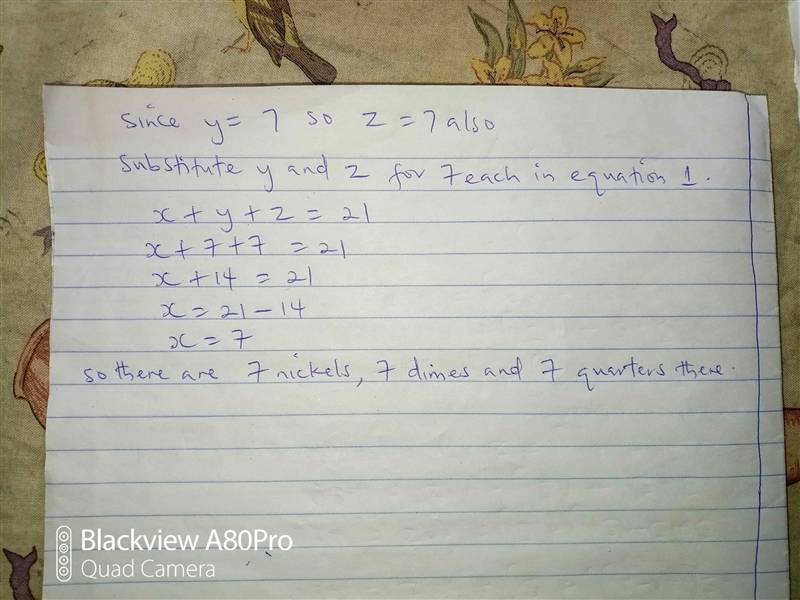 Since y = 7 so z = 7 also
Substitute y and z for 7 each in equation 1.
x + y + z = 21
x + 7 + 7 = 21
x + 14 = 21
x = 21 - 14
x = 7
so there are 7 nickels, 7 dimes and 7 quarters there.
Blackview A80Pro
Quad Camera